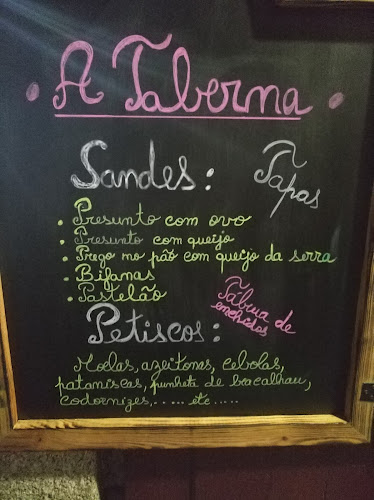 • A Taberna •
Sandes:
Tapas
• Presunto com ovo
• Presunto com queijo
• Prego no pão com queijo da serra
• Bifanas
• Pastelão
Tábua de
enchidos
Petiscos:
Moelas, azeitonas, cebolas,
pataniscas, punheta de bacalhau,
codornizes,..... etc.....